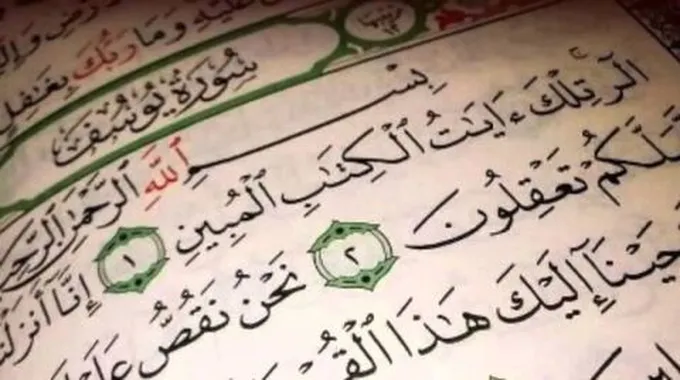 عَلَيْهِ وَمَا رَبُّكَ بِغَٰفِلٍ
سُورَةُ يُوسُفَ
بِسْمِ ٱللَّهِ ٱلرَّحْمَٰنِ ٱلرَّحِيمِ
الٓر تِلْكَ ءَايَٰتُ ٱلْكِتَٰبِ ٱلْمُبِينِ ١ إِنَّآ أَنزَلْنَٰ
لَّكُمْ تَعْقِلُونَ ٢ نَحْنُ نَقُصُّ عَلَ
حَيْنَآ إِلَيْكَ هَٰذَا ٱلْقُرْ